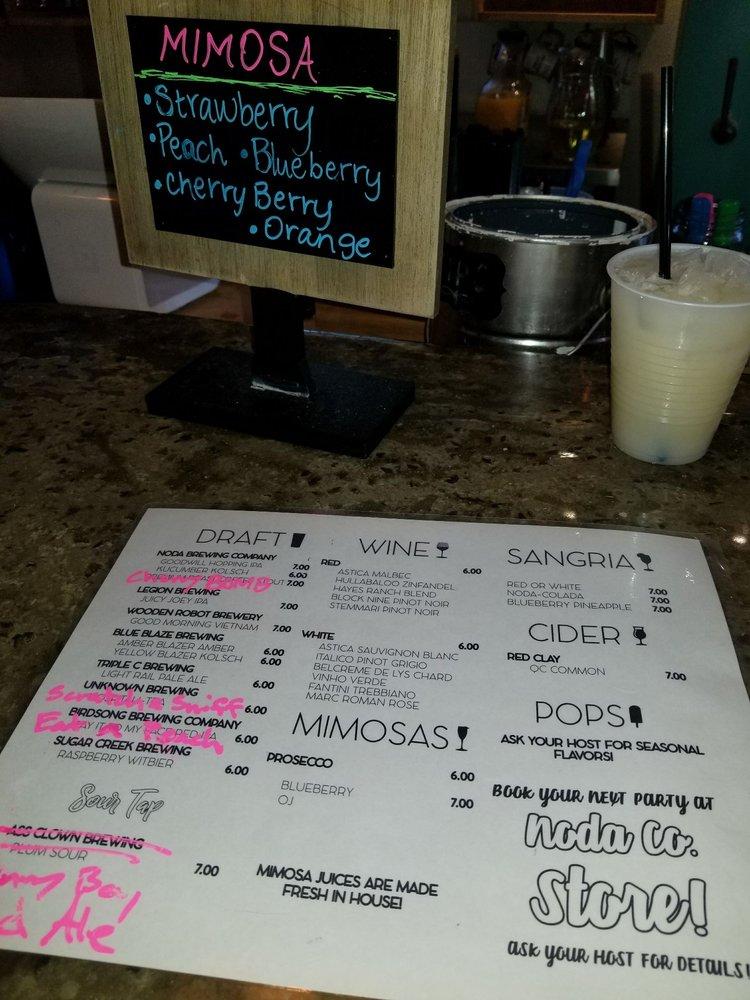 MIMOSA
•Strawberry
•Peach •Blueberry
•Cherry Berry
•Orange
DRAFT
NODA BREWING COMPANY
GOODWILL HOPPING IPA 7.00
KUCUMBER KOLSCH 6.00
7.00
Cherry BOMB
LEGION BREWING
JUICY JOEY IPA 7.00
WOODEN ROBOT BREWERY
GOOD MORNING VIETNAM 7.00
BLUE BLAZE BREWING
AMBER BLAZER AMBER 6.00
YELLOW BLAZER KOLSCH 6.00
TRIPLE C BREWING
LIGHT RAIL PALE ALE 6.00
UNKNOWN BREWING
Scratch & Sniff 6.00
BIRDSONG BREWING COMPANY
Eat a Peach 6.00
SUGAR CREEK BREWING
RASPBERRY WITBIER 6.00
Sour Tap
ASS CLOWN BREWING
PLUM SOUR 7.00
Bay
Ale
WINE
RED
ASTICA MALBEC 6.00
HULLABALOO ZINFANDEL
HAYES RANCH BLEND
BLOCK NINE PINOT NOIR
STEMMARI PINOT NOIR
WHITE
ASTICA SAUVIGNON BLANC 6.00
ITALICO PINOT GRIGIO
BELCREME DE LYS CHARD
VINHO VERDE
FANTINI TREBBIANO
MARC ROMAN ROSE
MIMOSAS
PROSECCO 6.00
BLUEBERRY 7.00
OJ
MIMOSA JUICES ARE MADE
FRESH IN HOUSE!
SANGRIA
RED OR WHITE 7.00
NODA-COLADA 7.00
BLUEBERRY PINEAPPLE 7.00
CIDER
RED CLAY
QC COMMON 7.00
POPS
ASK YOUR HOST FOR SEASONAL
FLAVORS!
BOOK YOUR NEXT PARTY AT
Noda Co.
Store!
ASK YOUR HOST FOR DETAILS!